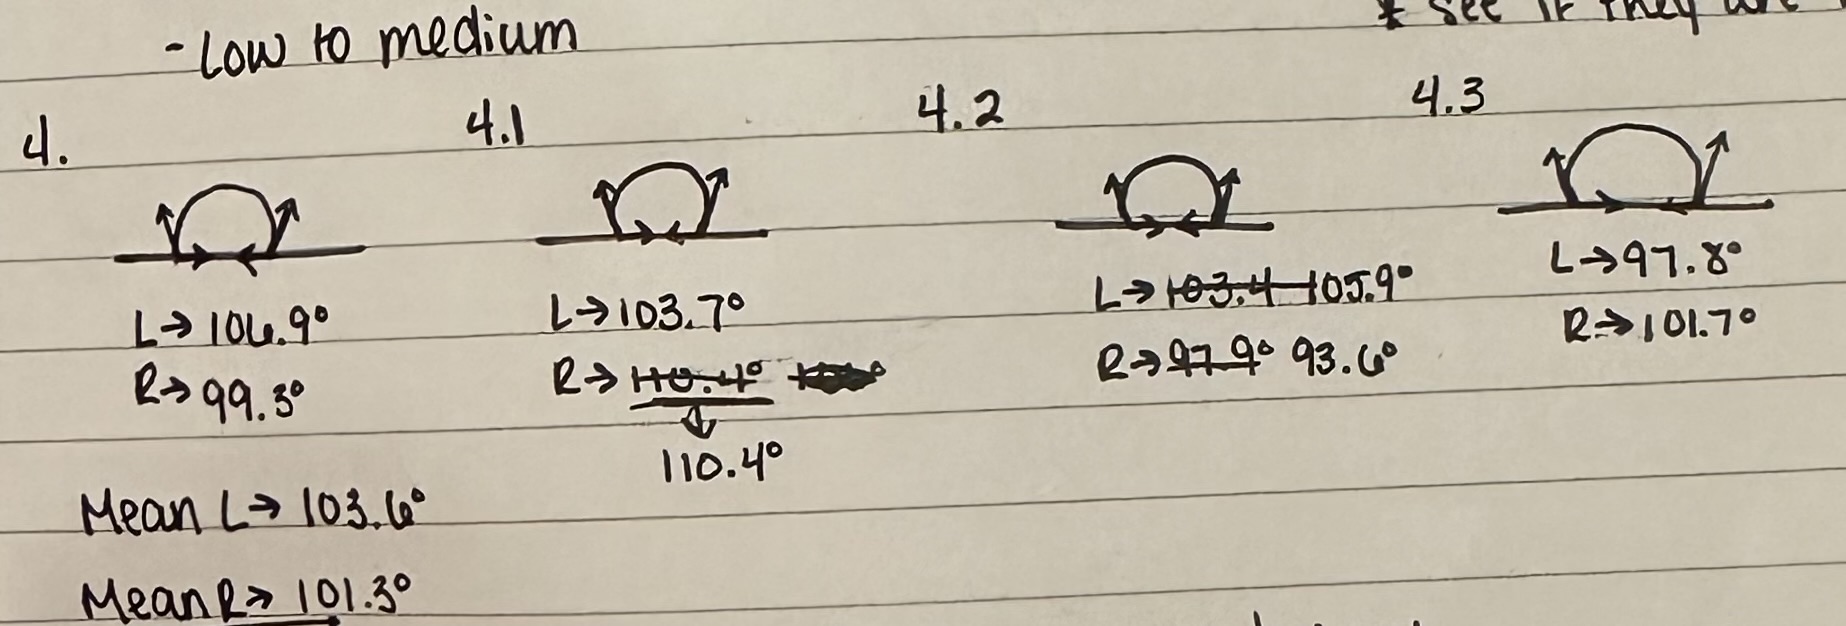 * see if they are
- Low to medium
4. 4.1 4.2 4.3
L→ 106.9° L→103.7° L→ 103.4 105.9° L→97.8°
R→ 99.3° R→ 110.4° R→ 97.9° 93.6° R→ 101.7°
110.4°
Mean L→ 103.6°
Mean R→ 101.3°